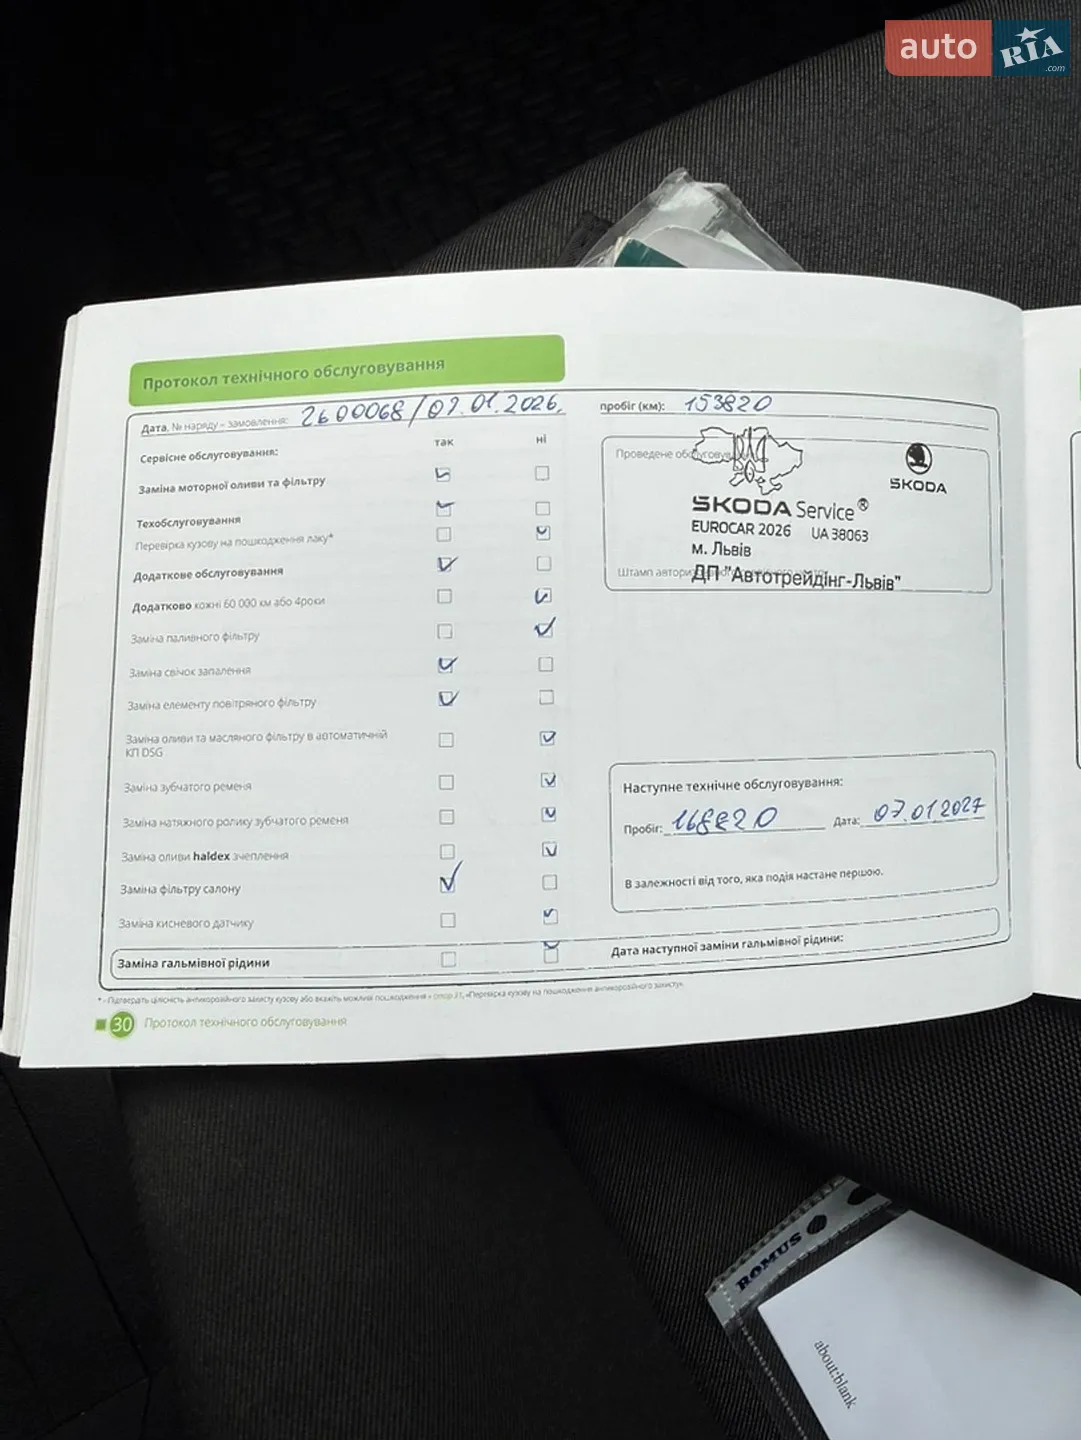 auto RIA.com
Протокол технічного обслуговування
Дата, № наряду – замовлення: 2600068/07.01.2026. пробіг (км): 153820
так ні
Сервісне обслуговування:
Заміна моторної оливи та фільтру
Техобслуговування
Перевірка кузову на пошкодження лаку*
Додаткове обслуговування
Додатково кожні 60 000 км або 4роки
Заміна паливного фільтру
Заміна свічок запалення
Заміна елементу повітряного фільтру
Заміна оливи та масляного фільтру в автоматичній
КП DSG
Заміна зубчатого ременя
Заміна натяжного ролику зубчатого ременя
Заміна оливи haldex зчеплення
Заміна фільтру салону
Заміна кисневого датчику
Заміна гальмівної рідини
Проведене
SKODA
SKODA Service®
EUROCAR 2026 UA 38063
м. Львів
Штамп
ДП "Автотрейдінг-Львів"
Наступне технічне обслуговування:
Пробіг: 168820 Дата: 07.01.2027
В залежності від того, яка подія настане першою.
Дата наступної заміни гальмівної рідини:
* - Підтвердіть цілісність антикорозійного захисту кузову або вкажіть можливі пошкодження » стор.31, «Перевірка кузову на пошкодження антикорозійного захисту».
30 Протокол технічного обслуговування
ROMUS
about:blank